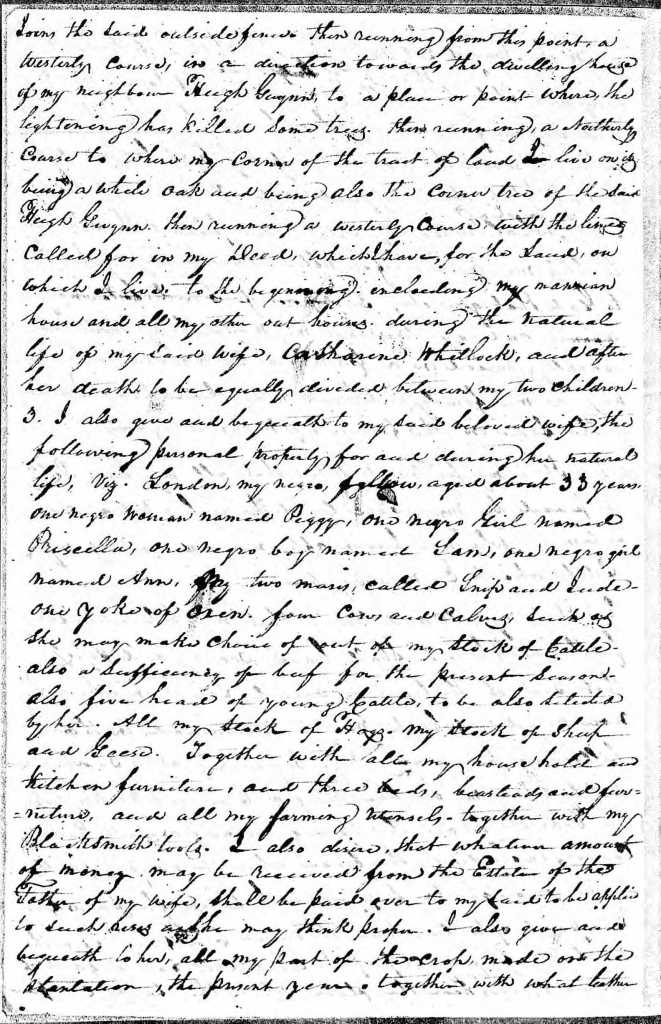 Joins the said outside fence then running from this point, a
Westerly Course, in a direction towards the dwelling house
of my neighbour Hugh Gwynn, to a place or point where, the
lightening has killed some trees. then running, a Northerly
Course to where my corner of the tract of land I live on is
being a white oak and being also the corner tree of the said
Hugh Gwynn. then running a westerly course, with the lines
called for in my Deed, which I have, for the Land, on
which I live. to the beginning. encloeding my mansian
house and all my other out houses. during the natural
life of my said wife, Catharine Whitlock, and after
her death to be equally divided between my two children.
3. I also give and bequeath to my said beloved wife, the
following personal property for and during her natural
life, Viz. London, my negro, fellow, aged about 33 years.
one negro woman named Peggy, one negro Girl named
Priscella, one negro boy named Sam, one negro girl
named Ann, My two mares, called Snip and Jude-
one yoke of oxen. four cows and Calves, such as
she may make choice of out of my stock of Cattle-
also a sufficiency of beef for the present season-
also five head of young Cattle, to be also selected
by her. All my stock of Hogs. my stock of sheep
and Geese. Together with all my household and
kitchen furniture, and three beds, beasteads and fur=
=neture, and all my farming utensels- together with my
Blacksmith tools. I also disire, that whatever amount
of money may be received from the Estate of the
Father of my wife, shall be paid over to my said to be applied
to such uses as she may think proper. I also give and
bequeath to her, all my part of the crop made on the
plantation, the present year. together with what leather